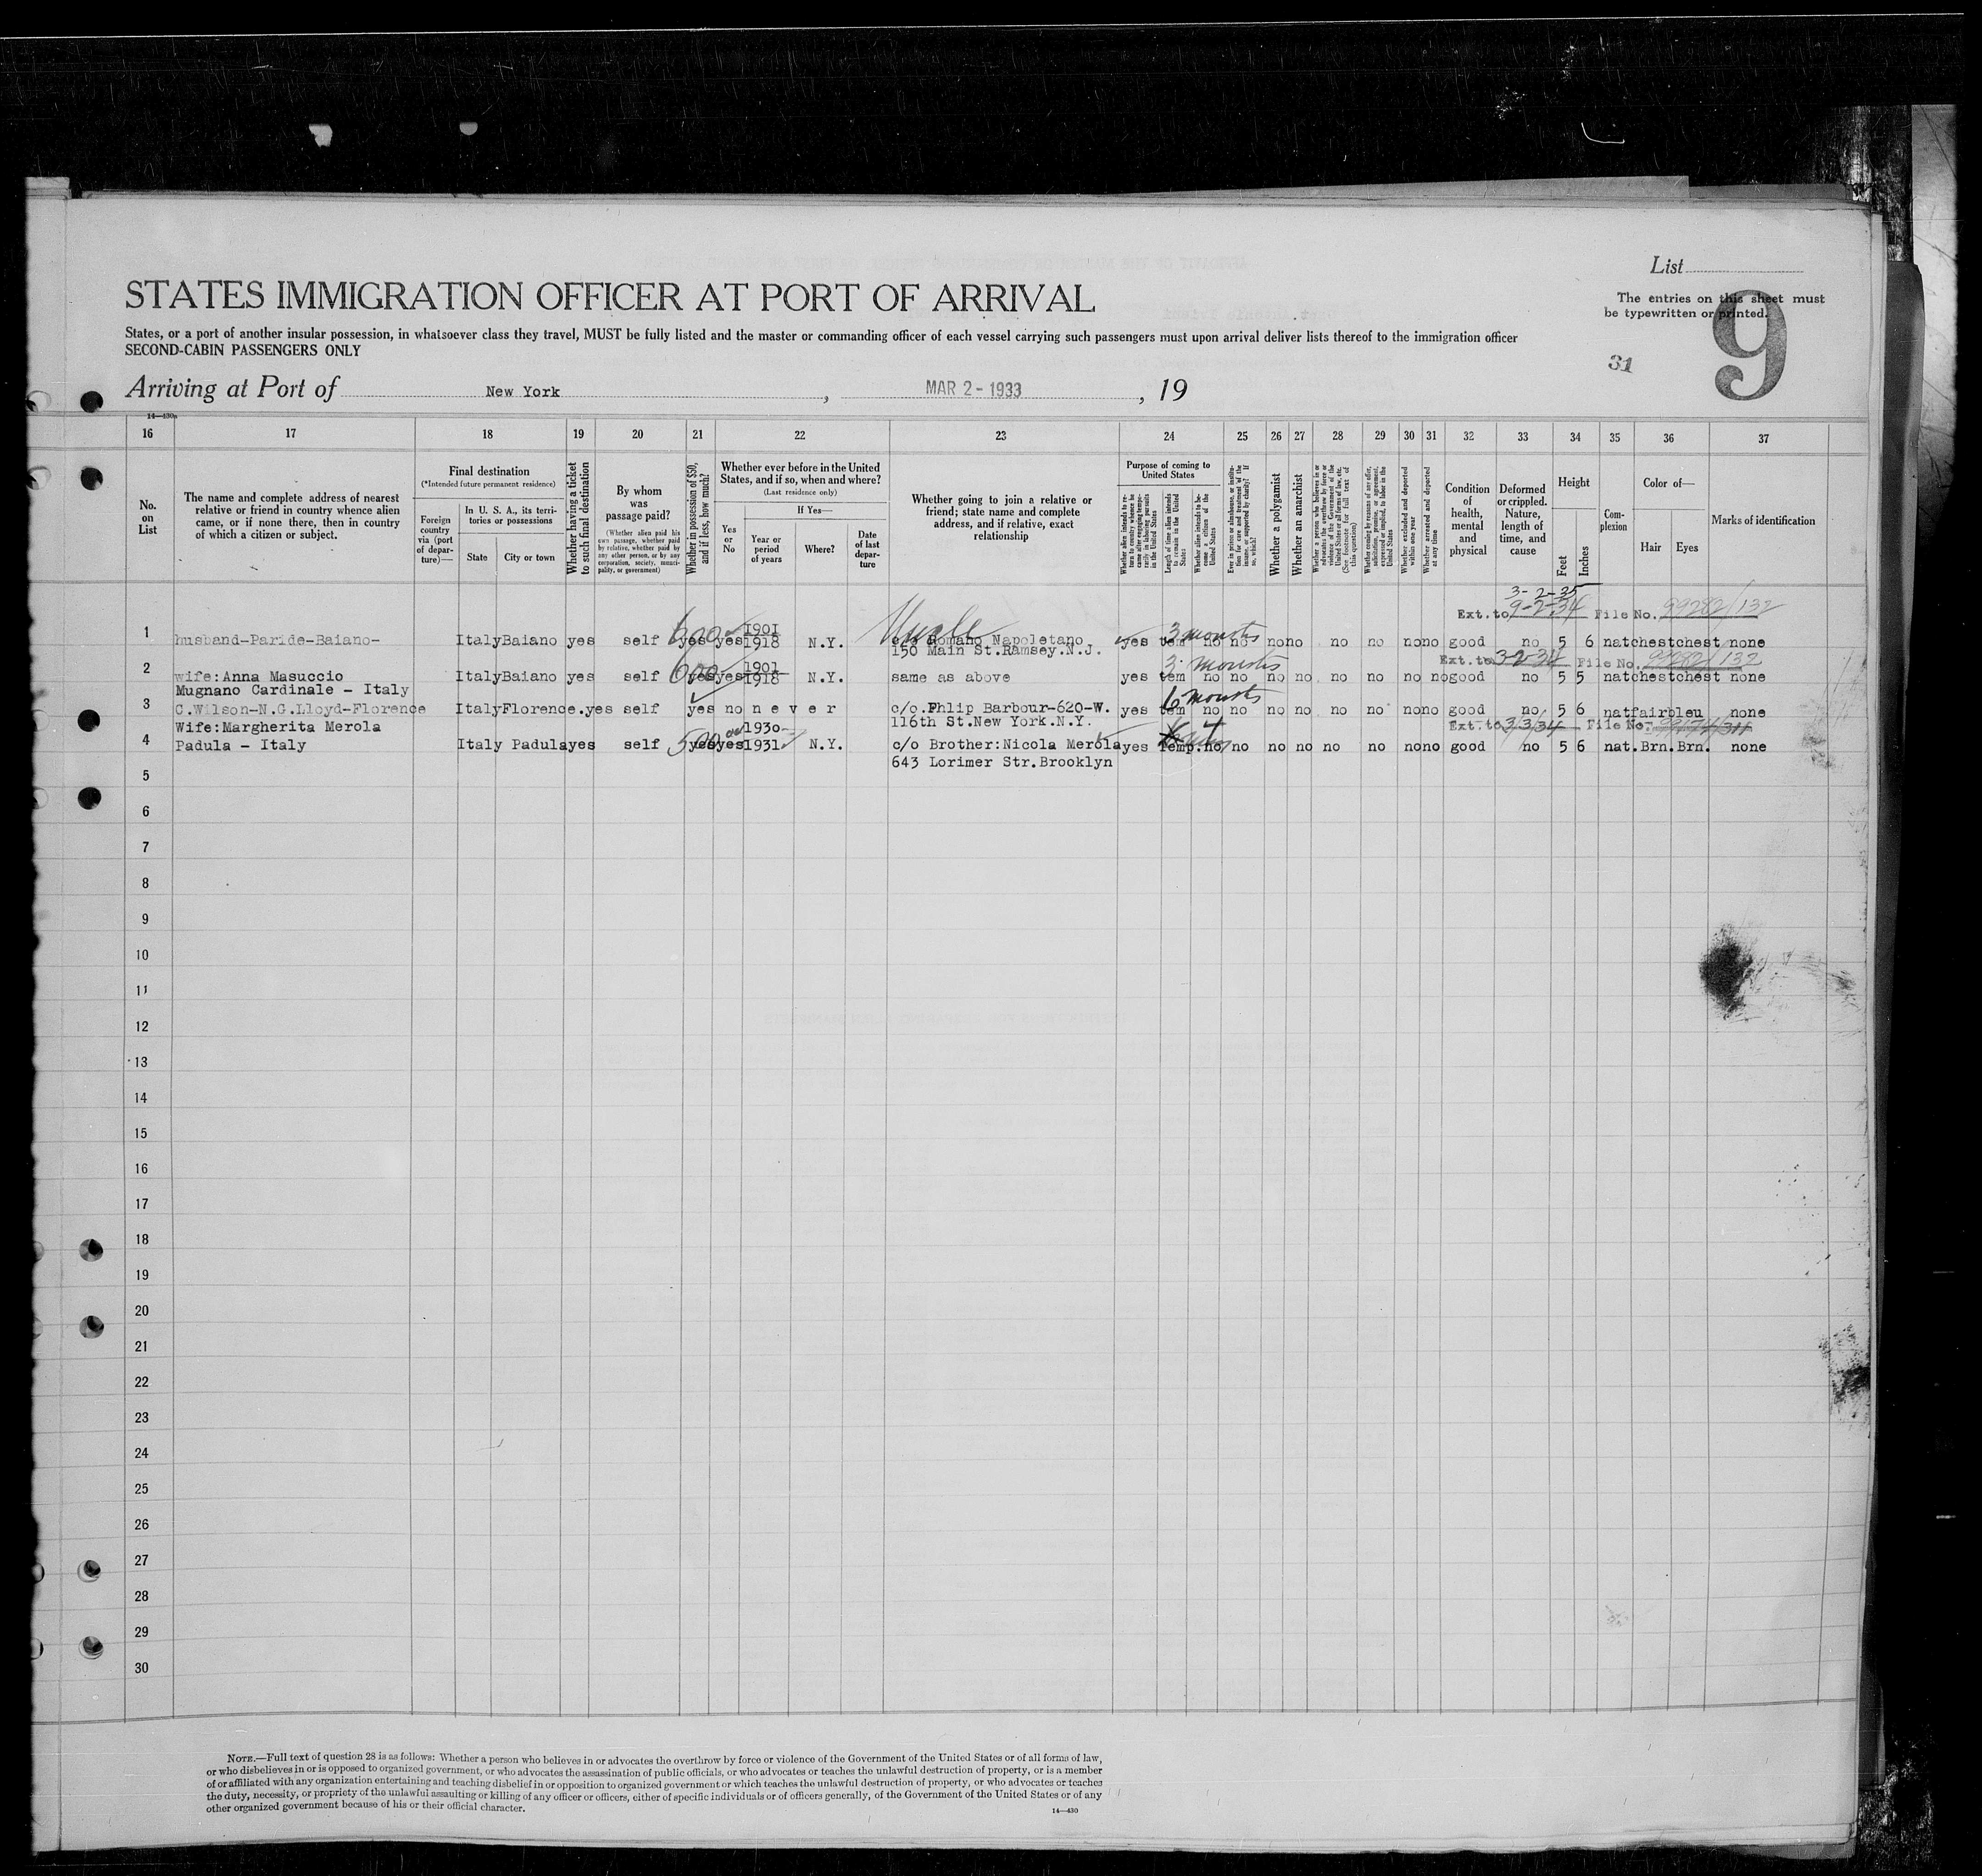 List
STATES IMMIGRATION OFFICER AT PORT OF ARRIVAL
The entries on this sheet must
be typewritten or printed.
9
States, or a port of another insular possession, in whatsoever class they travel, MUST be fully listed and the master or commanding officer of each vessel carrying such passengers must upon arrival deliver lists thereof to the immigration officer
SECOND-CABIN PASSENGERS ONLY
31
Arriving at Port of New York, MAR 2 - 1933, 19
14—430a
16 17 18 19 20 21 22 23 24 25 26 27 28 29 30 31 32 33 34 35 36 37
No. on List
The name and complete address of nearest
relative or friend in country whence alien
came, or if none there, then in country
of which a citizen or subject.
Final destination
(*Intended future permanent residence)
Foreign country via (port of departure)—
In U. S. A., its territories or possessions
State
City or town
Whether having a ticket to such final destination
By whom was passage paid?
(Whether alien paid his own passage, whether paid by relative, whether paid by any other person, or by any corporation, society, municipality, or government)
Whether in possession of $50, and if less, how much?
Whether ever before in the United States, and if so, when and where?
(Last residence only)
Yes or No
If Yes—
Year or period of years
Where?
Date of last departure
Whether going to join a relative or
friend; state name and complete
address, and if relative, exact
relationship
Purpose of coming to United States
Whether alien intends to return to country whence he came after engaging temporarily in laboring pursuits in the United States
Length of time alien intends to remain in the United States
Whether alien intends to become a citizen of the United States
Ever in prison or almshouse, or institution for care and treatment of the insane, or supported by charity? If so, which?
Whether a polygamist
Whether an anarchist
Whether a person who believes in or advocates the overthrow by force or violence of the Government of the United States or all forms of law, etc. (See footnote for full text of this question)
Whether coming by reason of any offer, solicitation, promise, or agreement, expressed or implied, to labor in the United States
Whether excluded and deported within one year
Whether arrested and deported at any time
Condition of health, mental and physical
Deformed or crippled. Nature, length of time, and cause
Height
Feet
Inches
Complexion
Color of—
Hair
Eyes
Marks of identification
3-2-35
Ext. to 9-2-34 File No. 99282/132
1 husband-Paride-Baiano- Italy Baiano yes self 600 yes yes 1901 1918 N.Y. Uncle c/o Romano Napoletano yes tem 3 months no no no no no no no no good no 5 6 nat chest chest none
150 Main St.Ramsey.N.J.
Ext. to 3-2-34 File No. 99282/132
2 wife:Anna Masuccio Italy Baiano yes self 600 yes yes 1901 1918 N.Y. same as above yes tem 3 months no no no no no no no no good no 5 5 nat chest chest none
Mugnano Cardinale - Italy
3 C.Wilson-N.G.Lloyd-Florence Italy Florence.yes self yes no never c/o.Phlip Barbour-620-W. yes tem 6 months no no no no no no no no good no 5 6 nat fair bleu none
116th St.New York.N.Y.
Ext. to 3/3/34 File No. 99174/311
Wife:Margherita Merola
4 Padula - Italy Italy Padula yes self 500 yes yes 1930- 1931 N.Y. c/o Brother:Nicola Merola yes Temp. no no no no no no no no good no 5 6 nat. Brn. Brn. none
643 Lorimer Str.Brooklyn
5
6
7
8
9
10
11
12
13
14
15
16
17
18
19
20
21
22
23
24
25
26
27
28
29
30
NOTE.—Full text of question 28 is as follows: Whether a person who believes in or advocates the overthrow by force or violence of the Government of the United States or of all forms of law,
or who disbelieves in or is opposed to organized government, or who advocates the assassination of public officials, or who advocates or teaches the unlawful destruction of property, or is a member
of or affiliated with any organization entertaining and teaching disbelief in or opposition to organized government or which teaches the unlawful destruction of property, or who advocates or teaches
the duty, necessity, or propriety of the unlawful assaulting or killing of any officer or officers, either of specific individuals or of officers generally, of the Government of the United States or of any
other organized government because of his or their official character.
14—430